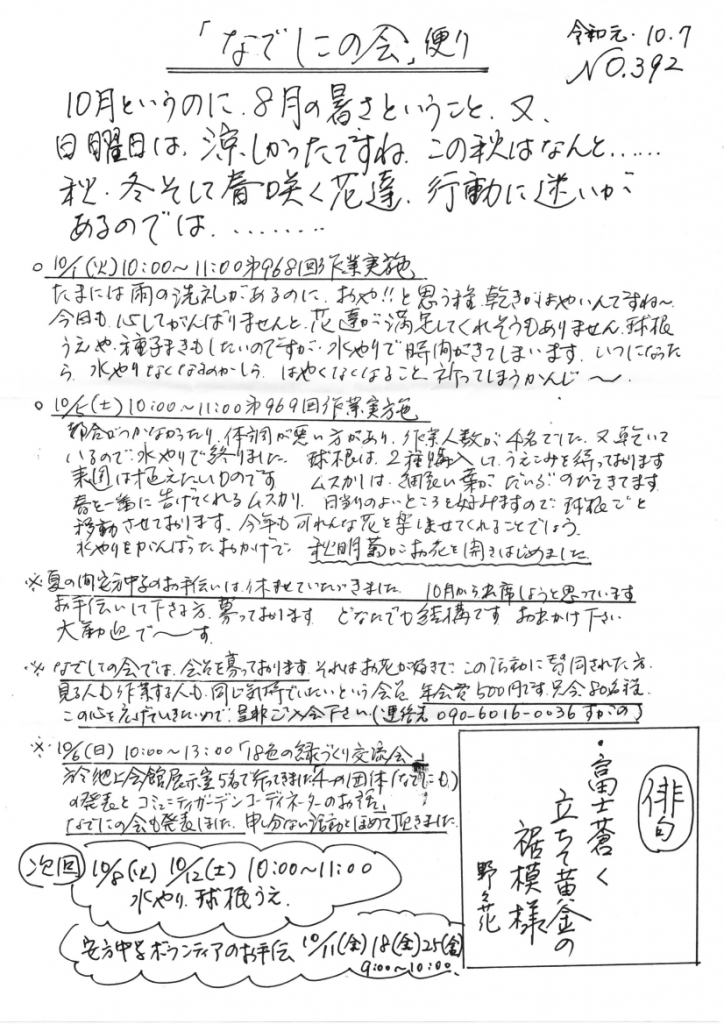 「なでしこの会」便り
令和元.10.7
NO.392
10月というのに、8月の暑さということ、又、
日曜日は、涼しかったですね。この秋はなんと……
秋、冬そして春咲く花達、行動に迷いが
あるのでは………
○ 10/1(火)10:00～11:00第968回作業実施
たまには雨の洗礼があるのに、おや!!と思う程、乾きがはやいんですね～
今日も、心してがんばりませんと、花達が満足してくれそうもありません。球根
うえや、種子まきもしたいのですが、水やりで時間がきてしまいます。いつになった
ら、水やりなくなるのかしら、はやくなくなること、祈ってしまうかんじ～。
○ 10/5(土)10:00～11:00第969回作業実施
都合がつかなかったり、体調が悪い方があり、作業人数が4名でした。又乾いて
いるので、水やりで終りました。球根は、2種購入して、うえこみを待っております
来週は植えたいものです ムスカリは、細長い葉がだいぶのびてきてます。
春を一番に告げてくれるムスカリ、日当りのよいところを好みますので、球根ごと
移動させております。今年も可れんな花を楽しませてくれることでしょう。
水やりをがんばったおかげで、秋明菊がお花を開きはじめました。
※夏の間安方中学のお手伝いは、休ませていただきました。10月から出席しようと思っています
お手伝いして下さる方、募っております。どなたでも結構です お出かけ下さい
大歓迎で～す。
※ なでしこの会では、会員を募っております。それはお花が好きで、この活動に賛同された方、
見る人も作業する人も、同じ気持でいたいという会員 年会費500円です。只今80名程、
この心を広げていきたいので、是非ご入会下さい(連絡先 090-6016-0036 すがの)
※ 10/6(日) 10:00～13:00「18色の緑づくり交流会」
於池上会館展示室5名で行ってきました。4つの団体(なでしこも)
の発表とコミュニティガーデンコーディネーターのお話、
なでしこの会も発表しました。申し分ない活動とほめて頂きました。
俳句
・富士蒼く
立ちて黄金の
裾模様
野々花
次回 10/8(火) 10/12(土) 10:00～11:00
水やり、球根うえ、
安方中学ボランティアのお手伝 10/11(金)18(金)25(金)
9:00～10:00